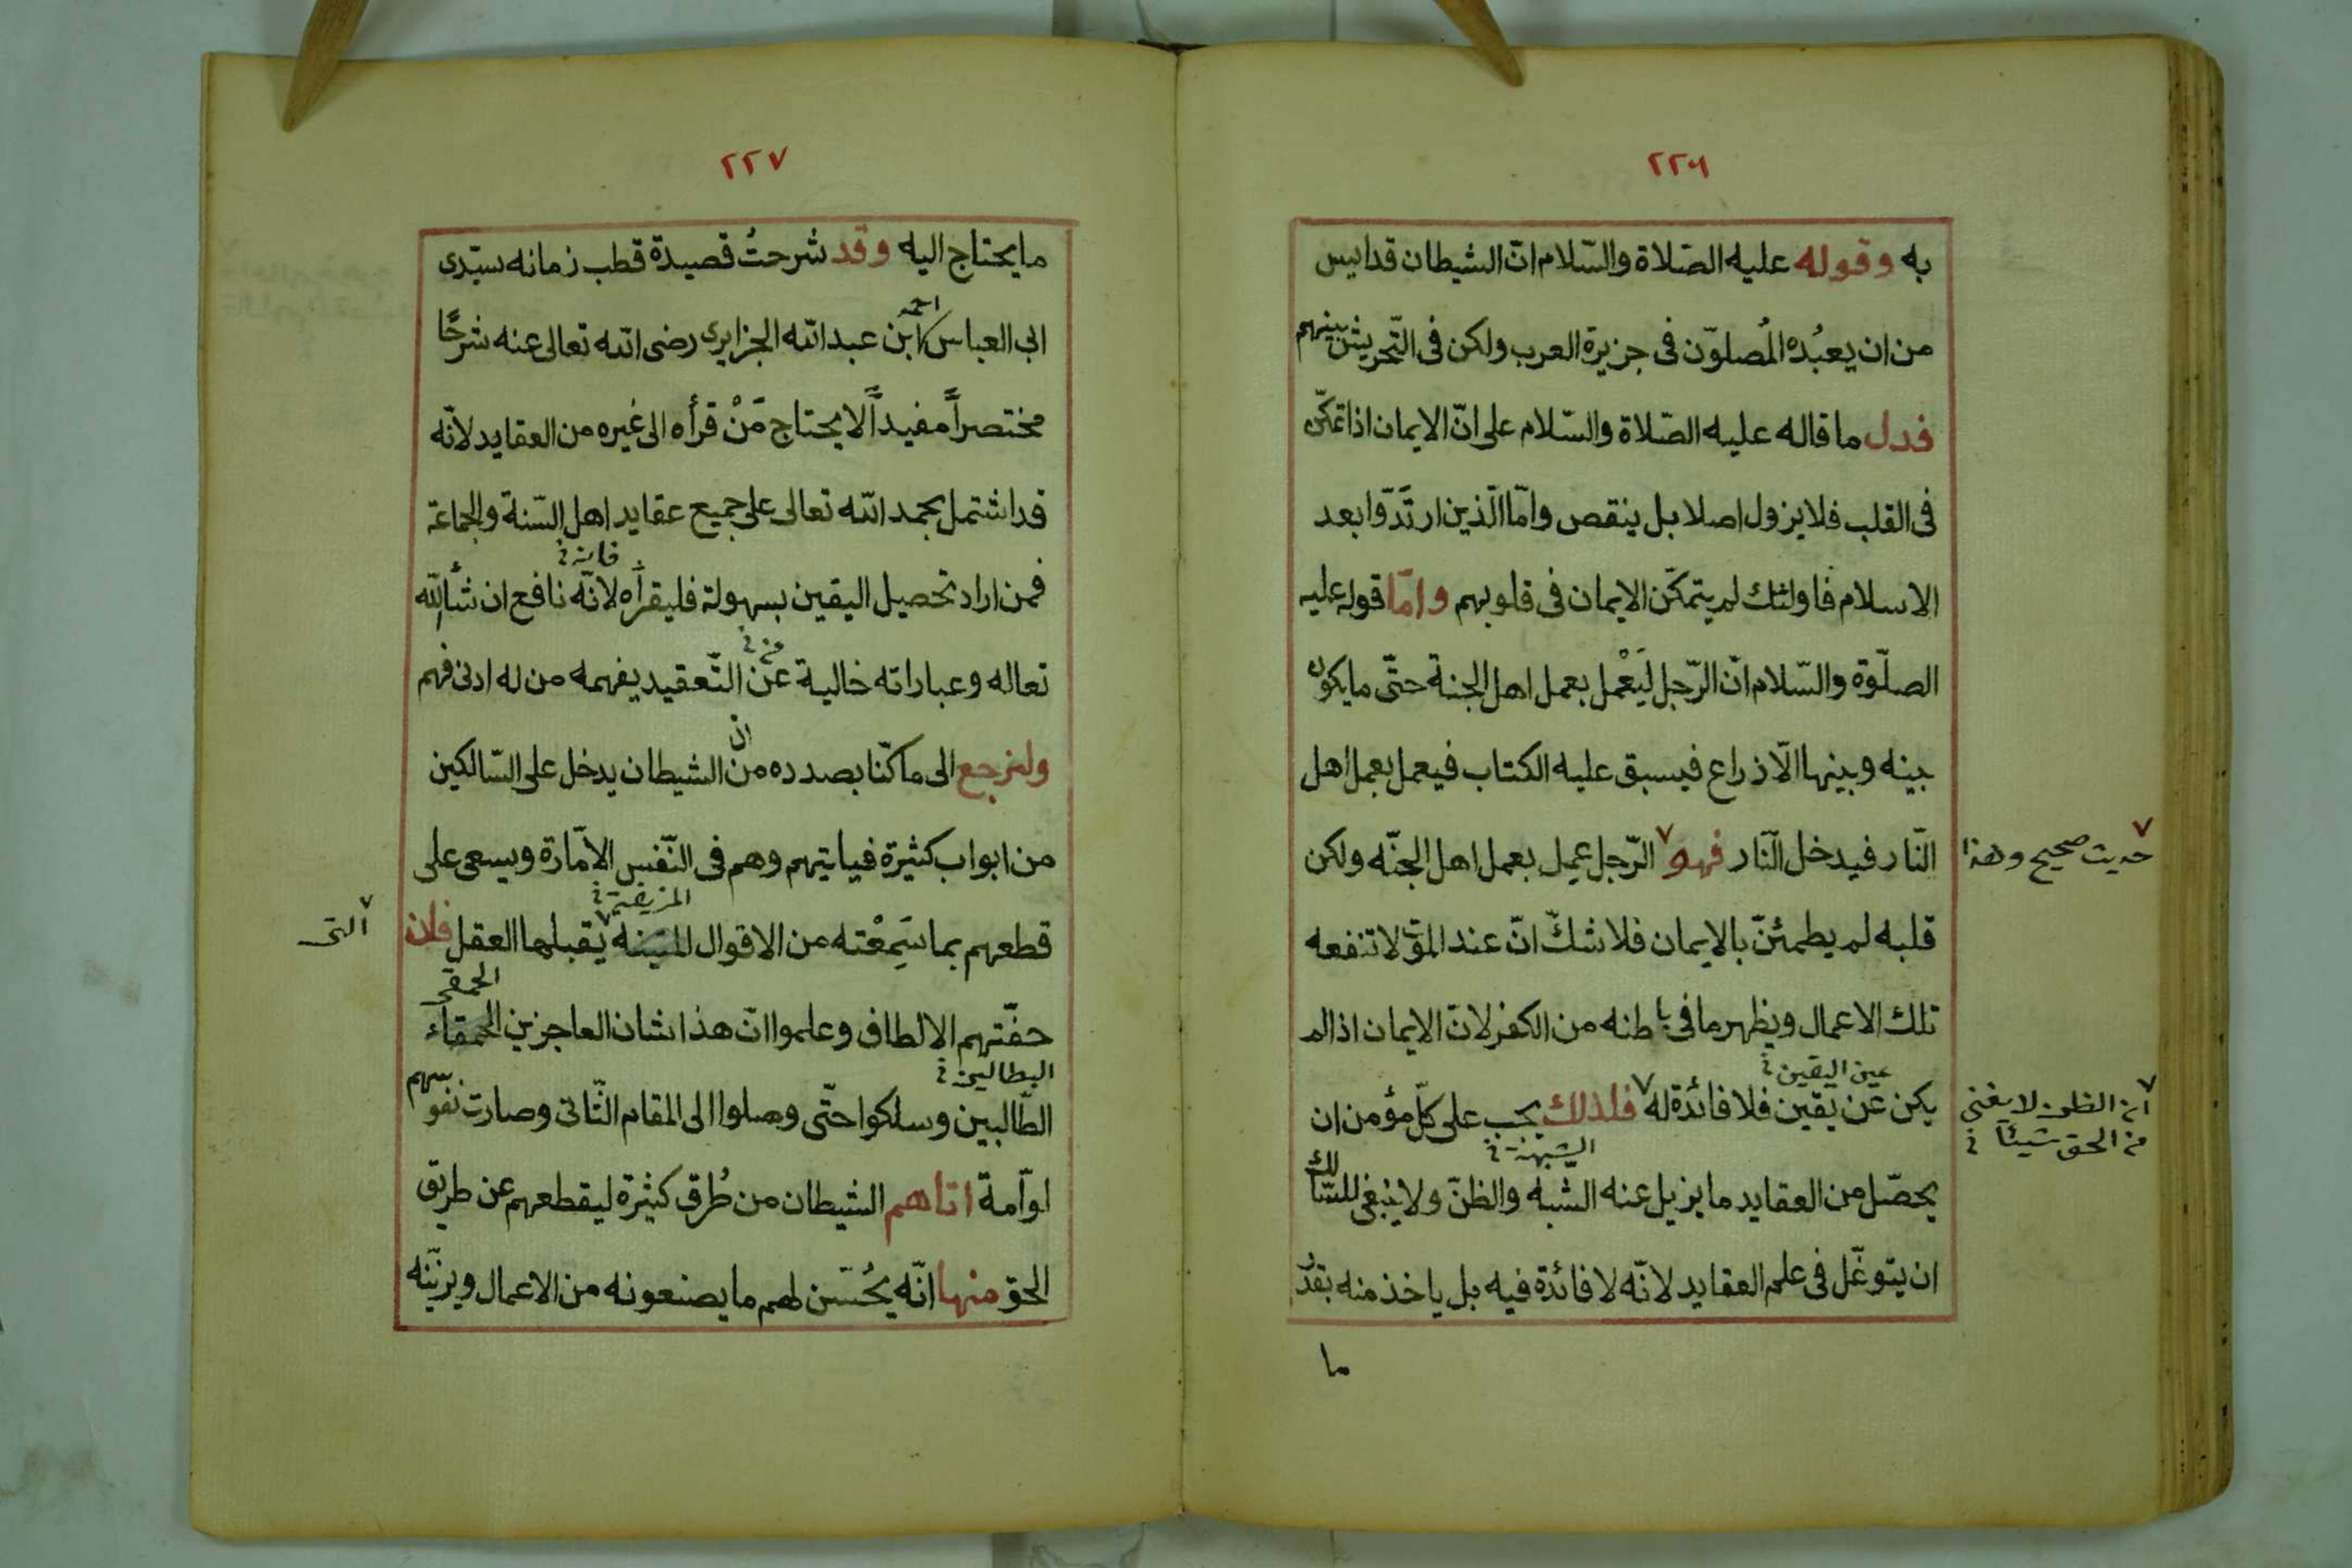 ٢٢٦
به وقوله عليه الصّلاة والسّلام انّ الشيطان قد ايس
من ان يعبُده المُصلوّن فى جزيرة العرب ولكن فى التّحريش بينهم
فدل ما قاله عليه الصّلاة والسّلام على انّ الايمان اذا تمكّن
فى القلب فلا يزول اصلا بل ينقص وامّا الّذين ارتَدّوا بعد
الاسلام فاولئك لم يتمكّن الايمان فى قلوبهم وامّا قوله عليه
الصلّوة والسّلام انّ الرّجل لَيَعْمل بعمل اهل الجنة حتّى ما يكون
بينه وبينها الّا ذراع فيسبق عليه الكتاب فيعمل بعمل اهل
النّار فيدخل النّار فهو ٧ الرّجل عمل بعمل اهل الجنّه ولكن
٧ حديث صحيح وهذا
قلبه لم يطمئنّ بالايمان فلا شكّ انّ عند الموت لا تنفعه
تلك الاعمال ويظهر ما فى باطنه من الكفر لانّ الايمان اذا لم
عين اليقين
يكن عن يقين فلا فائدة له ٧ فلذلك يجب على كلّ مؤمن ان
٧ ان الظن لا يغنى
من الحق شيئا
الشبهة
يحصّل من العقايد ما يزيل عنه الشبه والظنّ ولا ينبغى للسّالك
ان يتوغّل فى علم العقايد لانّه لا فائدة فيه بل ياخذ منه بقدر
ما
٢٢٧
ما يحتاج اليه وقد شرحتُ قصيدة قطب زمانه سيّدى
احمد
ابى العباس ابن عبد الله الجزايرى رضى الله تعالى عنه شرحًا
مختصراً مفيداً لا يحتاج مَنْ قرأه الى غيره من العقايد لانّه
قد اشتمل بحمد الله تعالى على جميع عقايد اهل السّنة والجماعة
فانه
فمن اراد تحصيل اليقين بسهولة فليقرأه لانّه نافع ان شأ الله
من
تعاله وعباراته خالية عن التّعقيد يفهمه من له ادنى فهم
ان
ولنرجع الى ما كنّا بصدده من الشيطان يدخل على السّالكين
من ابواب كثيرة فياتيهم وهم فى النّفس الامّارة ويسعى على
المزيفة
قطعهم بما سَمِعْته من الاقوال ٧ يقبلها العقل فلان
٧ التى
الحمقى
حفّتهم الالطاف وعلموا انّ هذا شان العاجزين الحمقاء
البطالين
الطّالبين وسلكوا حتّى وصلوا الى المقام الثّانى وصارت نفوسهم
لوّامة اتاهم الشيطان من طُرق كثيرة ليقطعهم عن طريق
الحق منها انّه يُحسّن لهم ما يصنعونه من الاعمال ويزيّنه